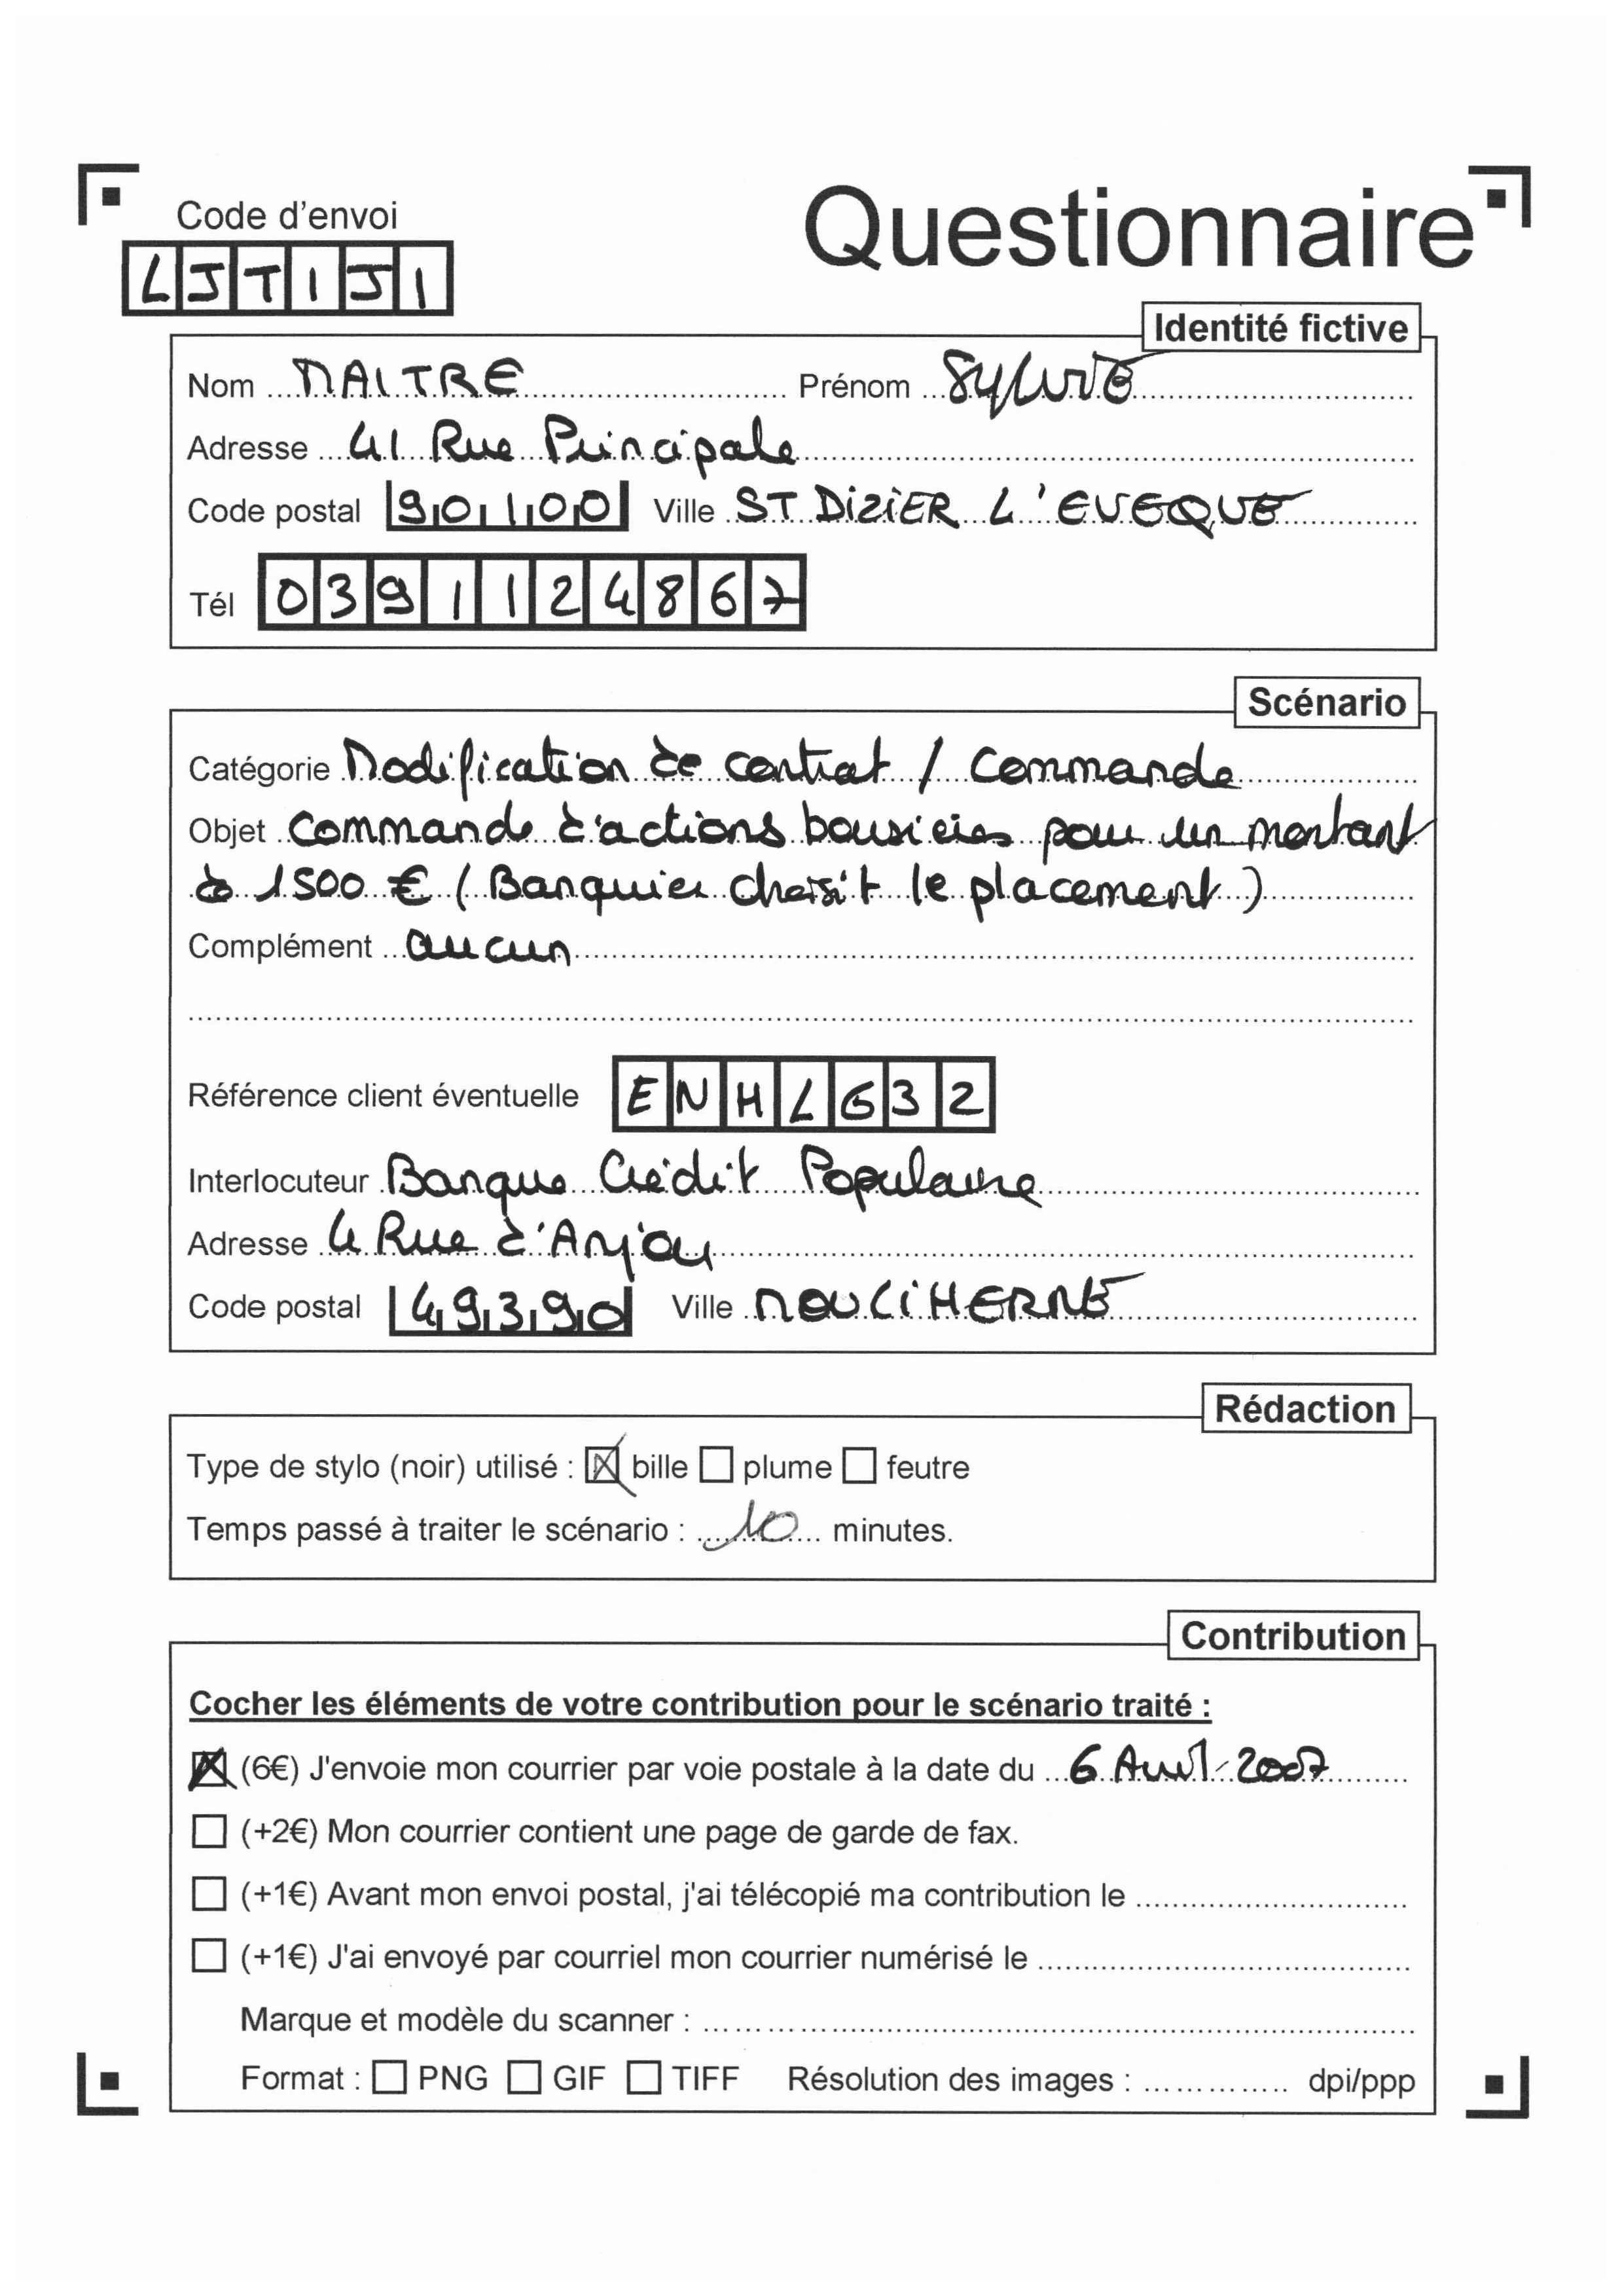 Code d'envoi
Questionnaire
LJTIJI
Identité fictive
Nom MAITRE Prénom Sylvie
Adresse 41 Rue Principale
Code postal 90100 Ville ST DIZIER L'EVEQUE
Tél 0391124867
Scénario
Catégorie Modification de contrat / Commande
Objet Commande d'actions boursières pour un montant
de 1500 € (Banquier choisit le placement)
Complément aucun
Référence client éventuelle ENHL632
Interlocuteur Banque Crédit Populaire
Adresse 4 Rue d'Anjou
Code postal 49390 Ville MOULIHERNE
Rédaction
Type de stylo (noir) utilisé : bille plume feutre
Temps passé à traiter le scénario : 10 minutes.
Contribution
Cocher les éléments de votre contribution pour le scénario traité :
(6€) J'envoie mon courrier par voie postale à la date du 6 Avril 2007
(+2€) Mon courrier contient une page de garde de fax.
(+1€) Avant mon envoi postal, j'ai télécopié ma contribution le
(+1€) J'ai envoyé par courriel mon courrier numérisé le
Marque et modèle du scanner :
Format : PNG GIF TIFF Résolution des images : dpi/ppp